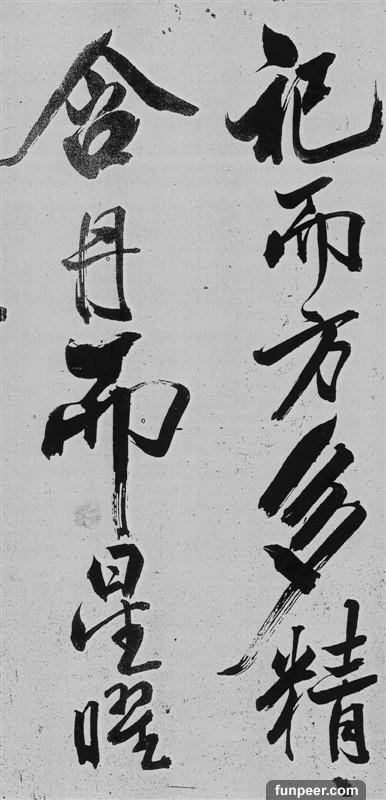 祀而方多精
含丹而星曜
funpeer.com